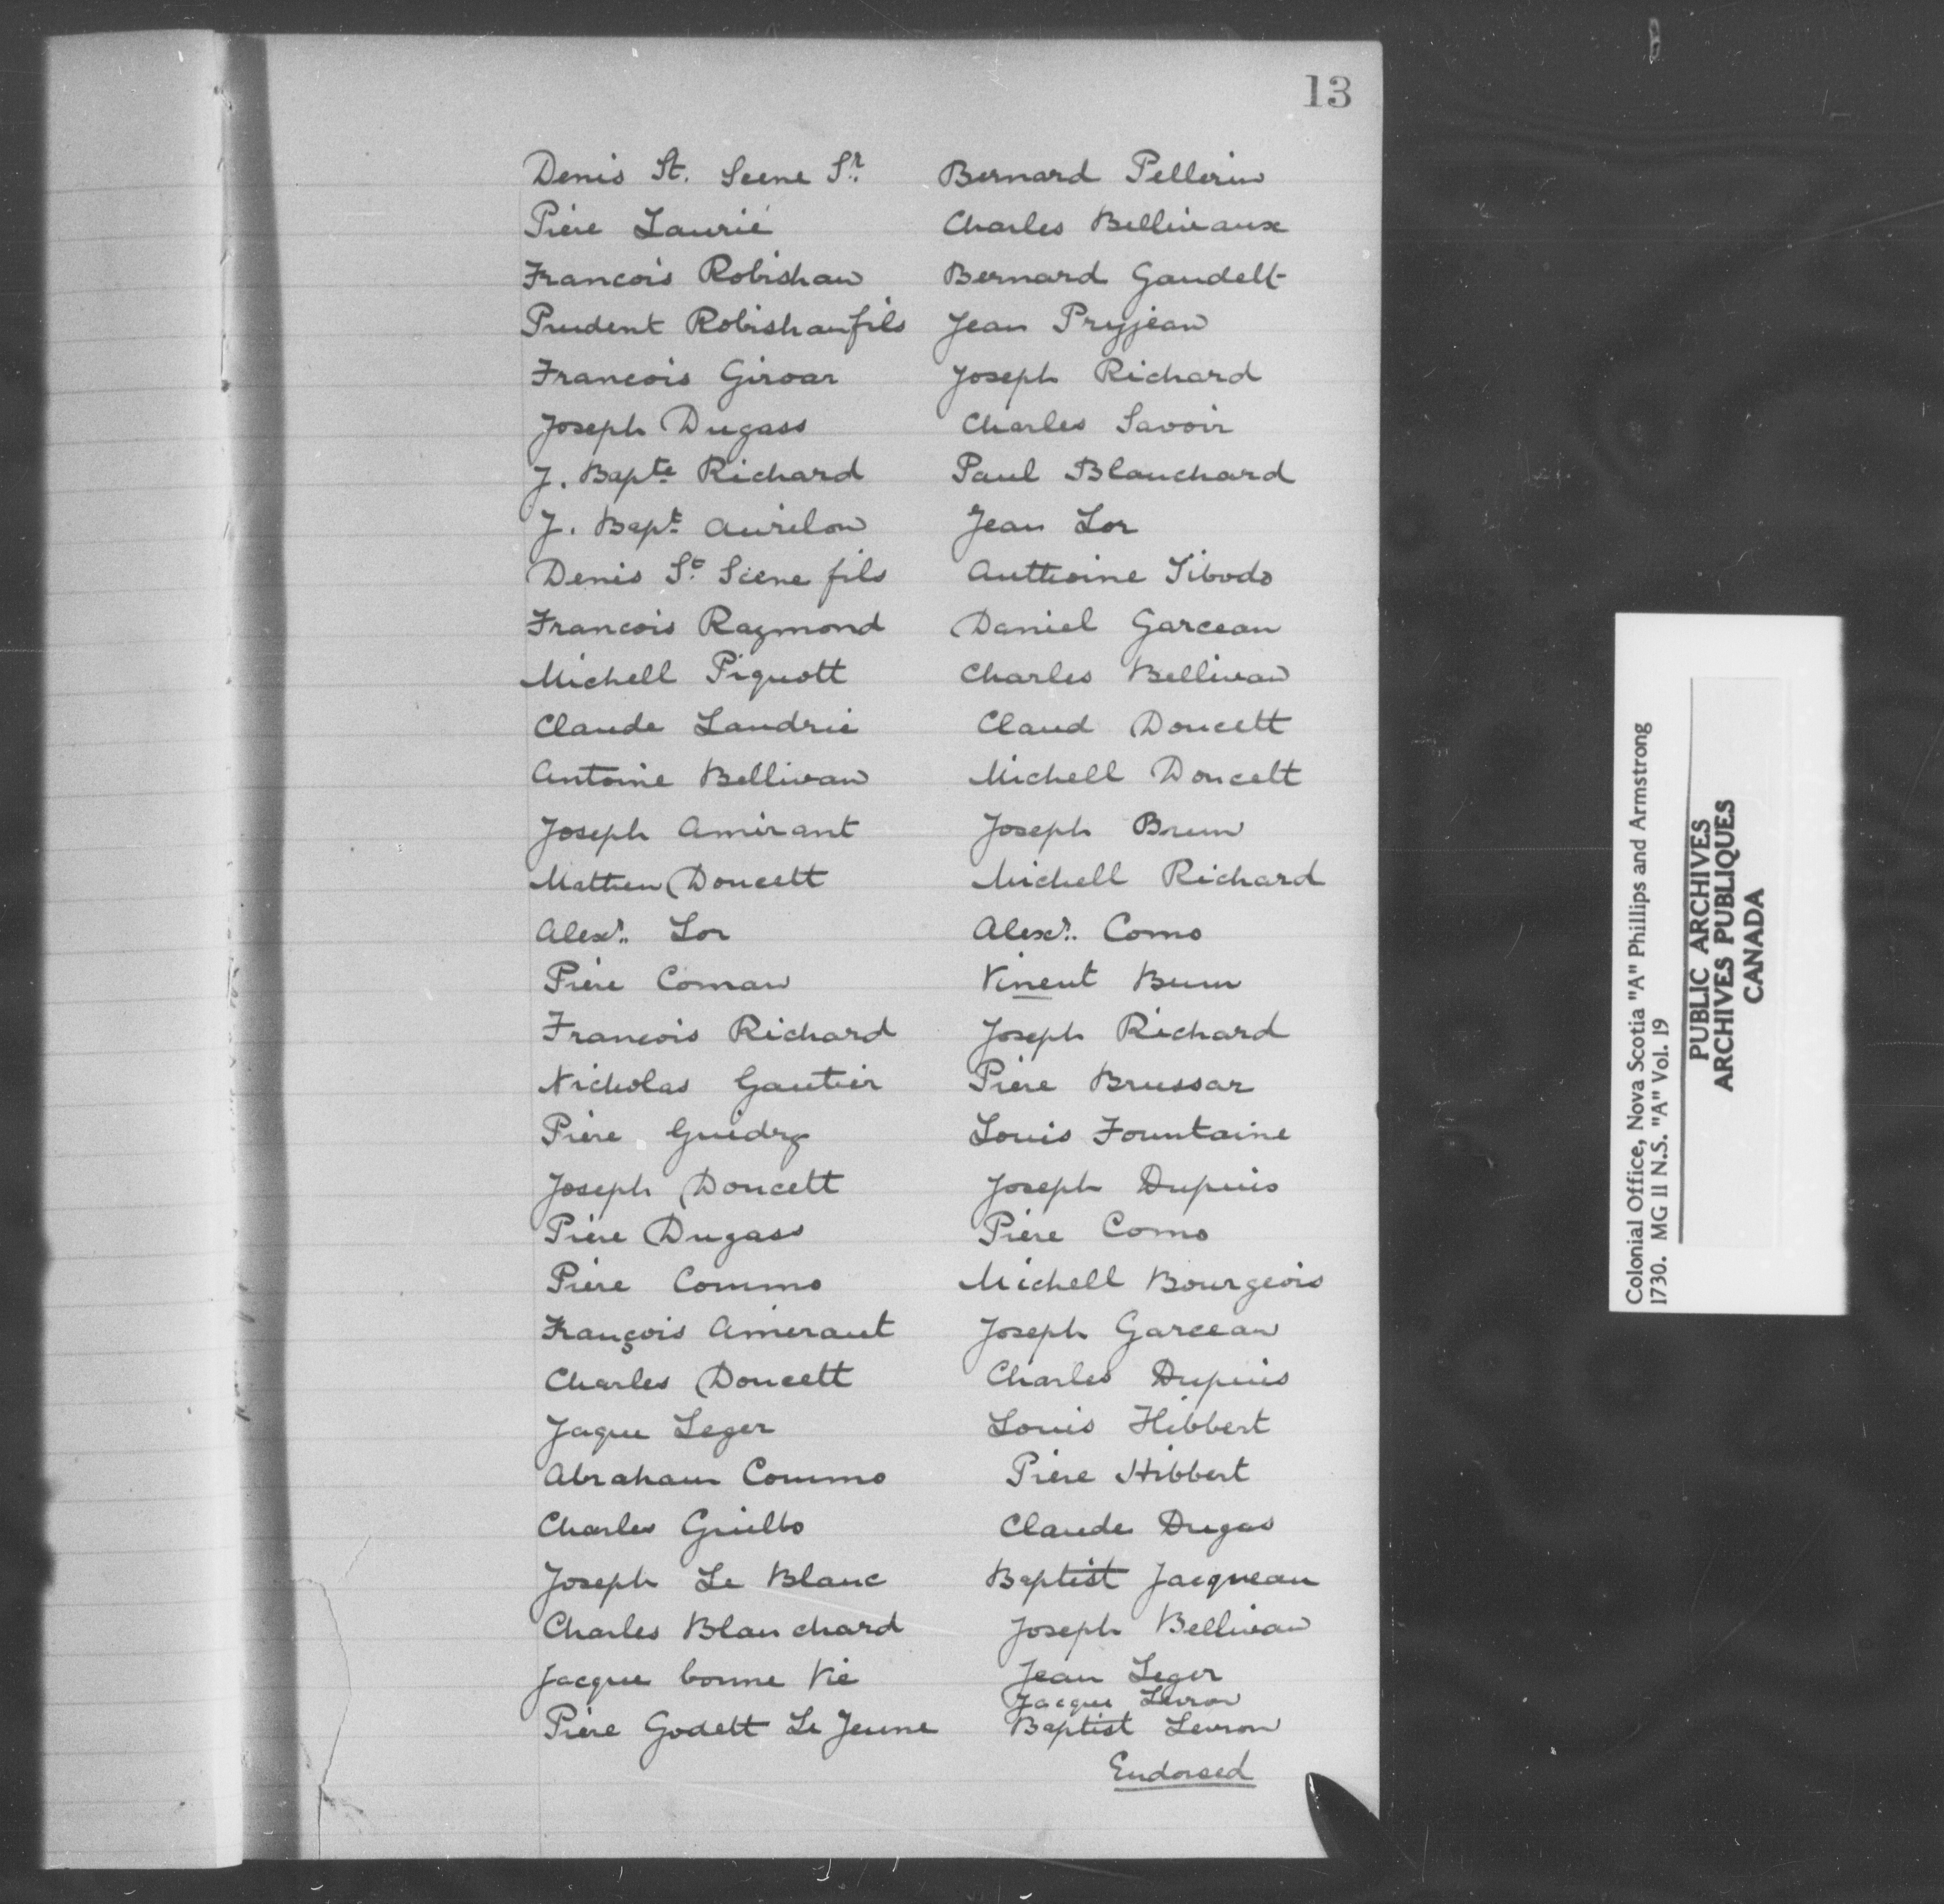 13
Denis St. Scene Sr. Bernard Pellerin
Piere Laurié Charles Belliveaux
Francois Robishau Bernard Gaudett
Prudent Robishau fils Jean Pryjean
Francois Giroar Joseph Richard
Joseph Dugass Charles Savoir
J. Bapte Richard Paul Blanchard
J. Bapt Aurilon Jean Lor
Denis St. Scene fils Anthoine Tibodo
Francois Raymond Daniel Garceau
Michell Piquott Charles Bellivau
Claude Landrie Claud Doucett
Antoine Bellivau Michell Doucett
Joseph Amirant Joseph Brun
Mathieu Doucett Michell Richard
Alexr. Lor Alexr. Como
Piere Comau Vinent Brun
Francois Richard Joseph Richard
Nicholas Gautier Piere Brussar
Piere Guidry Louis Fountaine
Joseph Doucett Joseph Dupuis
Piere Dugass Piere Como
Piere Commo Michell Bourgeois
François Amieraut Joseph Garceau
Charles Doucett Charles Dupuis
Jaque Leger Louis Hibbert
Abraham Commo Piere Hibbert
Charles Guilbo Claude Dugas
Joseph Le Blanc Baptist Jacqueau
Charles Blanchard Joseph Bellivau
Jacque bonne Vie Jean Leger
Jacque Levron
Piere Godett Le Jeune Baptist Levron
Endorsed
Colonial Office, Nova Scotia "A" Phillips and Armstrong
1730. MG 11 N.S. "A" Vol. 19
PUBLIC ARCHIVES
ARCHIVES PUBLIQUES
CANADA